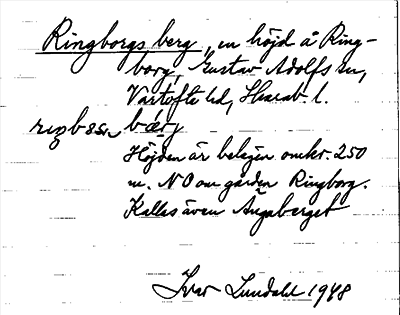 Ringborgs berg, en höjd å Ring-
borg, Gustav Adolfs sn,
Vartofta hd, Skarab. l.
bærj
Höjden är belägen omkr. 250
m. NO om gården Ringborg.
Kallas även Ängaberget
Ivar Lundahl 1948